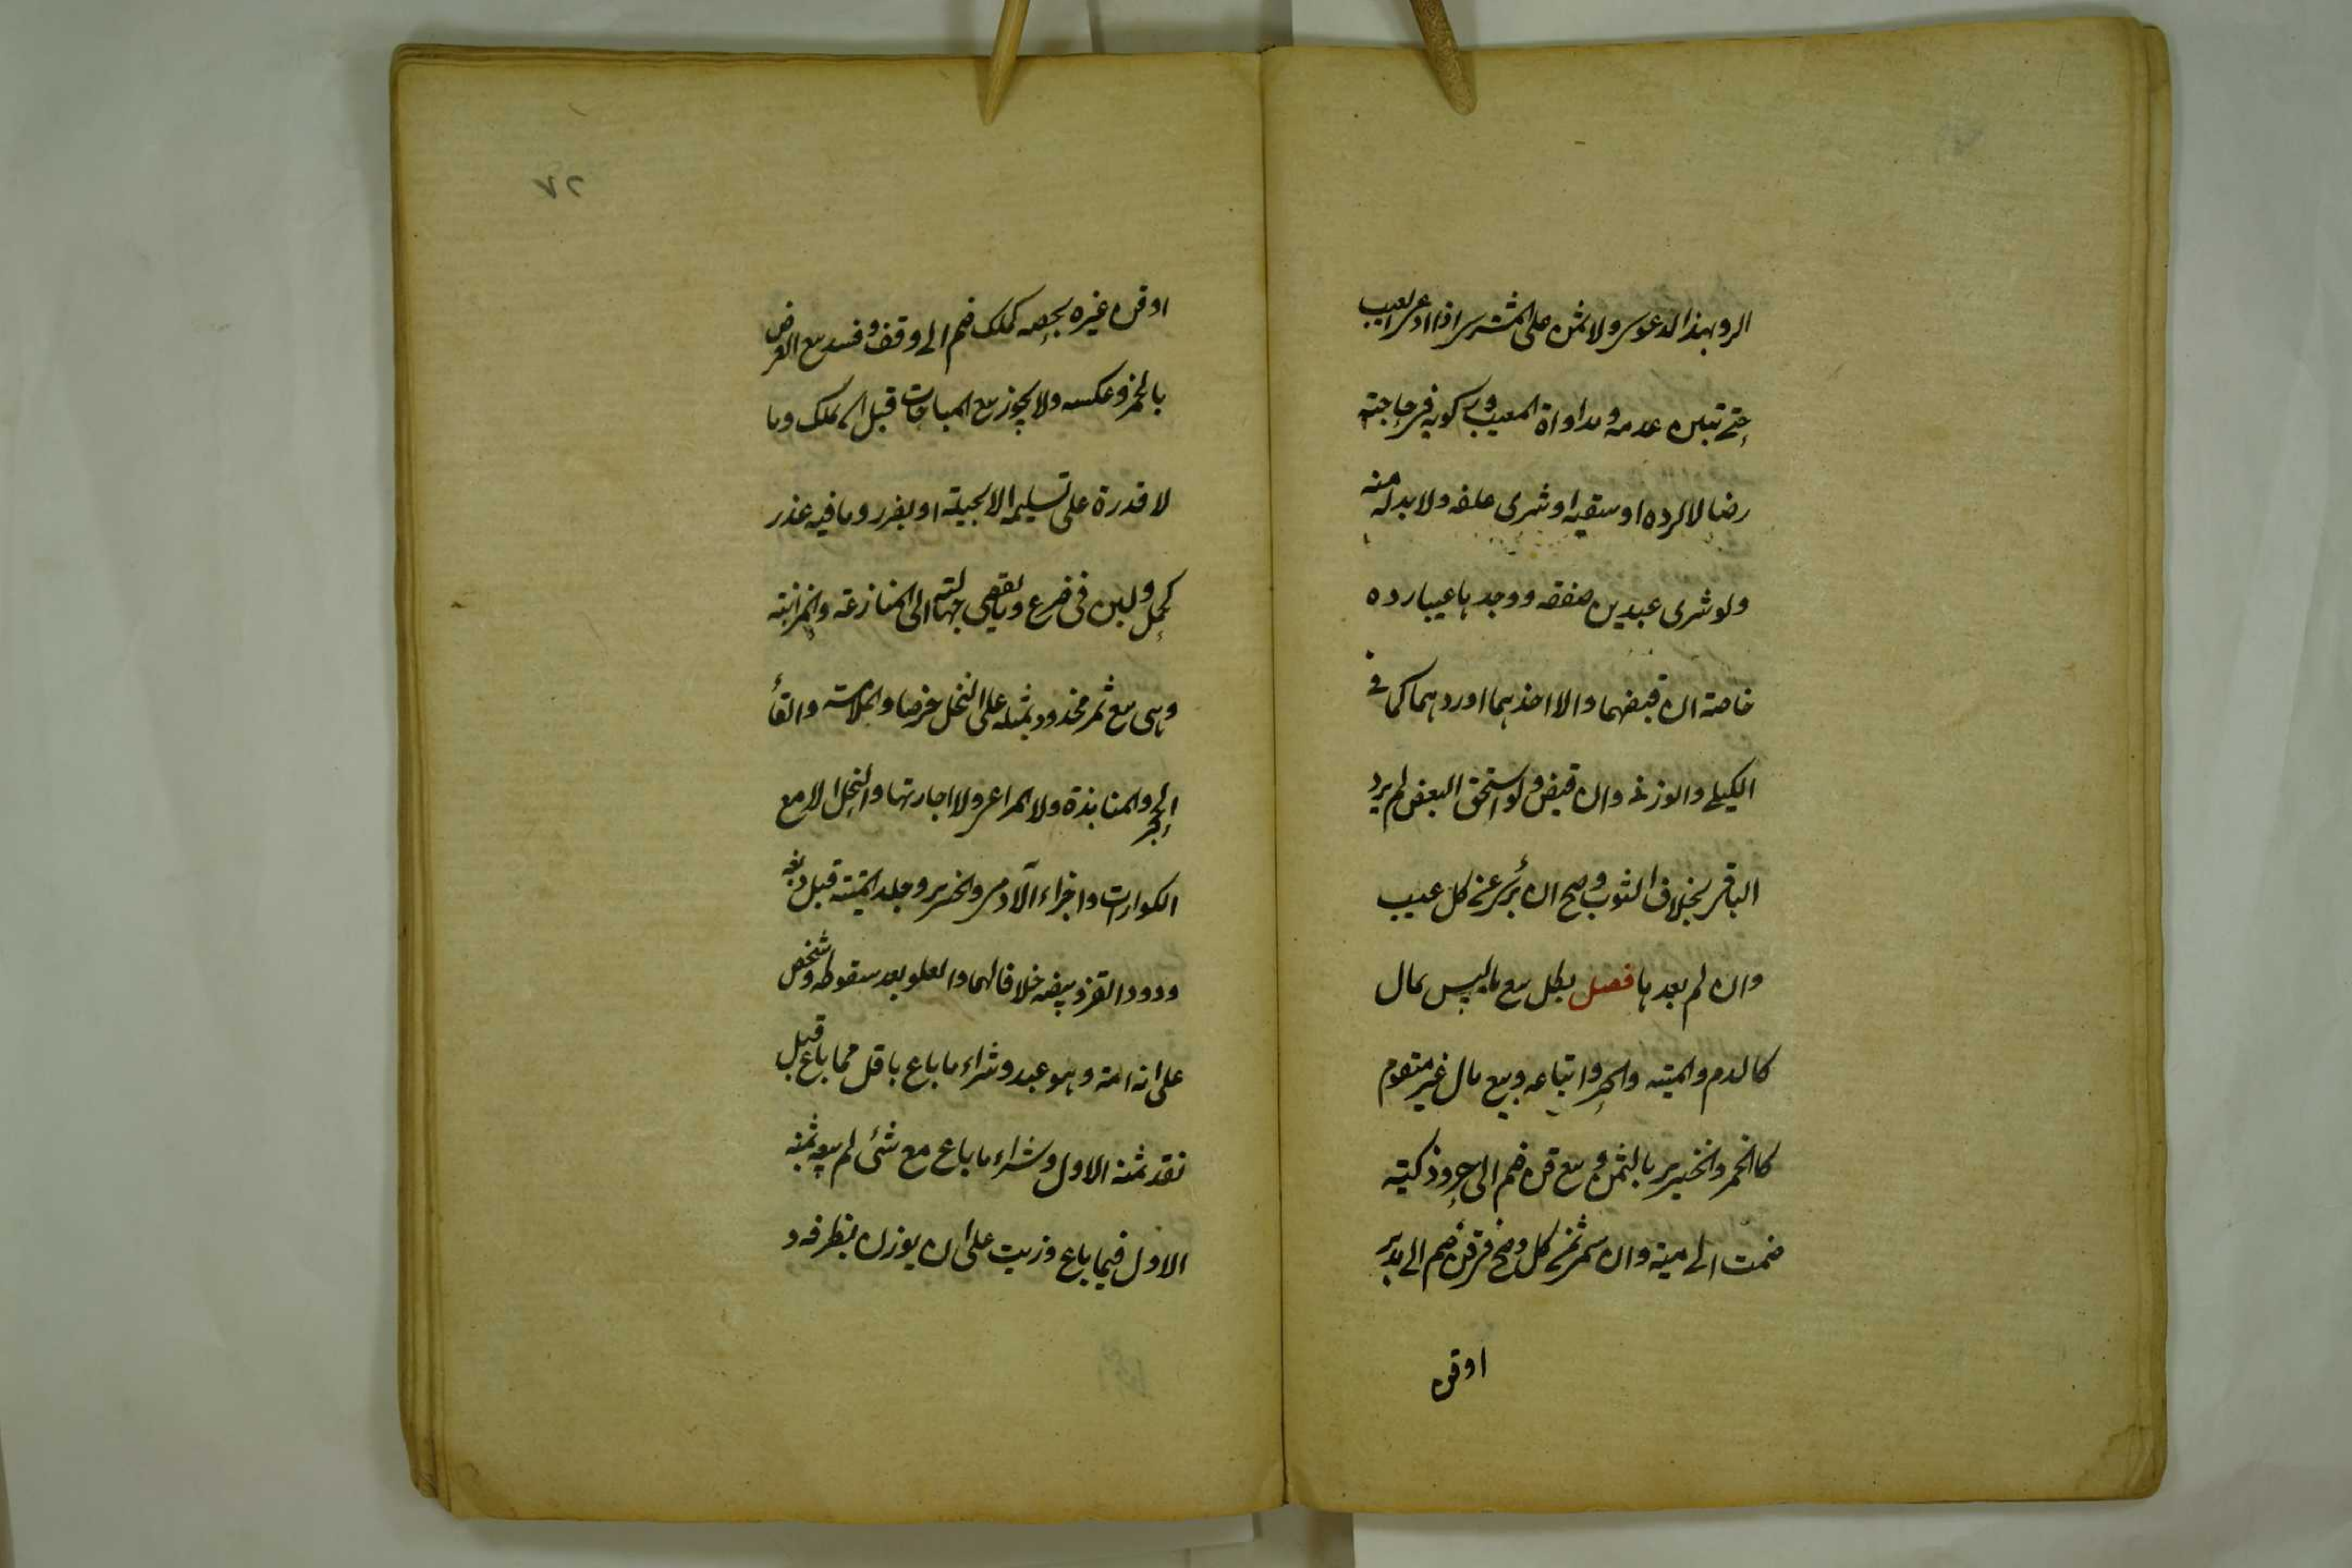 الرد بهذا الدعوى ولا ثمن على المشترى اذا ادعى العيب
حتى تبين عدمه ومداواة المعيب وركوبه فى حاجته
رضا لا لرده او سقيه او شرى علفه ولا بد له منه
ولو شرى عبدين صفقه ووجد باحدهما عيبا رده
خاصة ان قبضهما والا اخذهما او ردهما كما فى
الكيلى والوزنى وان قبض ولو استحق البعض لم يرد
الباقى بخلاف الثوب وصح ان برئ عن كل عيب
وان لم يعدها فصل بطل بيع ما ليس بمال
كالدم والميته والحر واتباعه وبيع مال غير متقوم
كالخمر والخنزير بالثمن وبيع قن ضم الى حر وذكية
ضمت الى ميتة وان سمى ثمن كل وصح فى قن ضم الى مدبر
او قن
٢٧
او قن غيره بحصه كملك ضم الى وقف وفسد بيع العرض
بالخمر وعكسه ولا يجوز بيع المباحات قبل ان يملك وما
لا قدرة على تسليمه الا بحيلة او بضرر وما فيه غرر
كحمل ولبن فى ضرع وما يفضى جهالته الى المنازعة والمزابنة
وهى بيع ثمر مجذوذ بمثله على النخل خرصا والملامسة والقاء
الحجر والمنابذة ولا المراعى ولا اجارتها والنحل الا مع
الكوارات واجزاء الآدمى والخنزير وجلد الميتة قبل دبغه
ودود القز وبيضه خلافا لهما والعلو بعد سقوطه وشخص
على انه امة وهو عبد وشراء ما باع باقل مما باع قبل
نقد ثمنه الاول وشراء ما باع مع شئ لم يبعه بثمنه
الاول فيما باع وزيت على ان يوزن بظرفه و